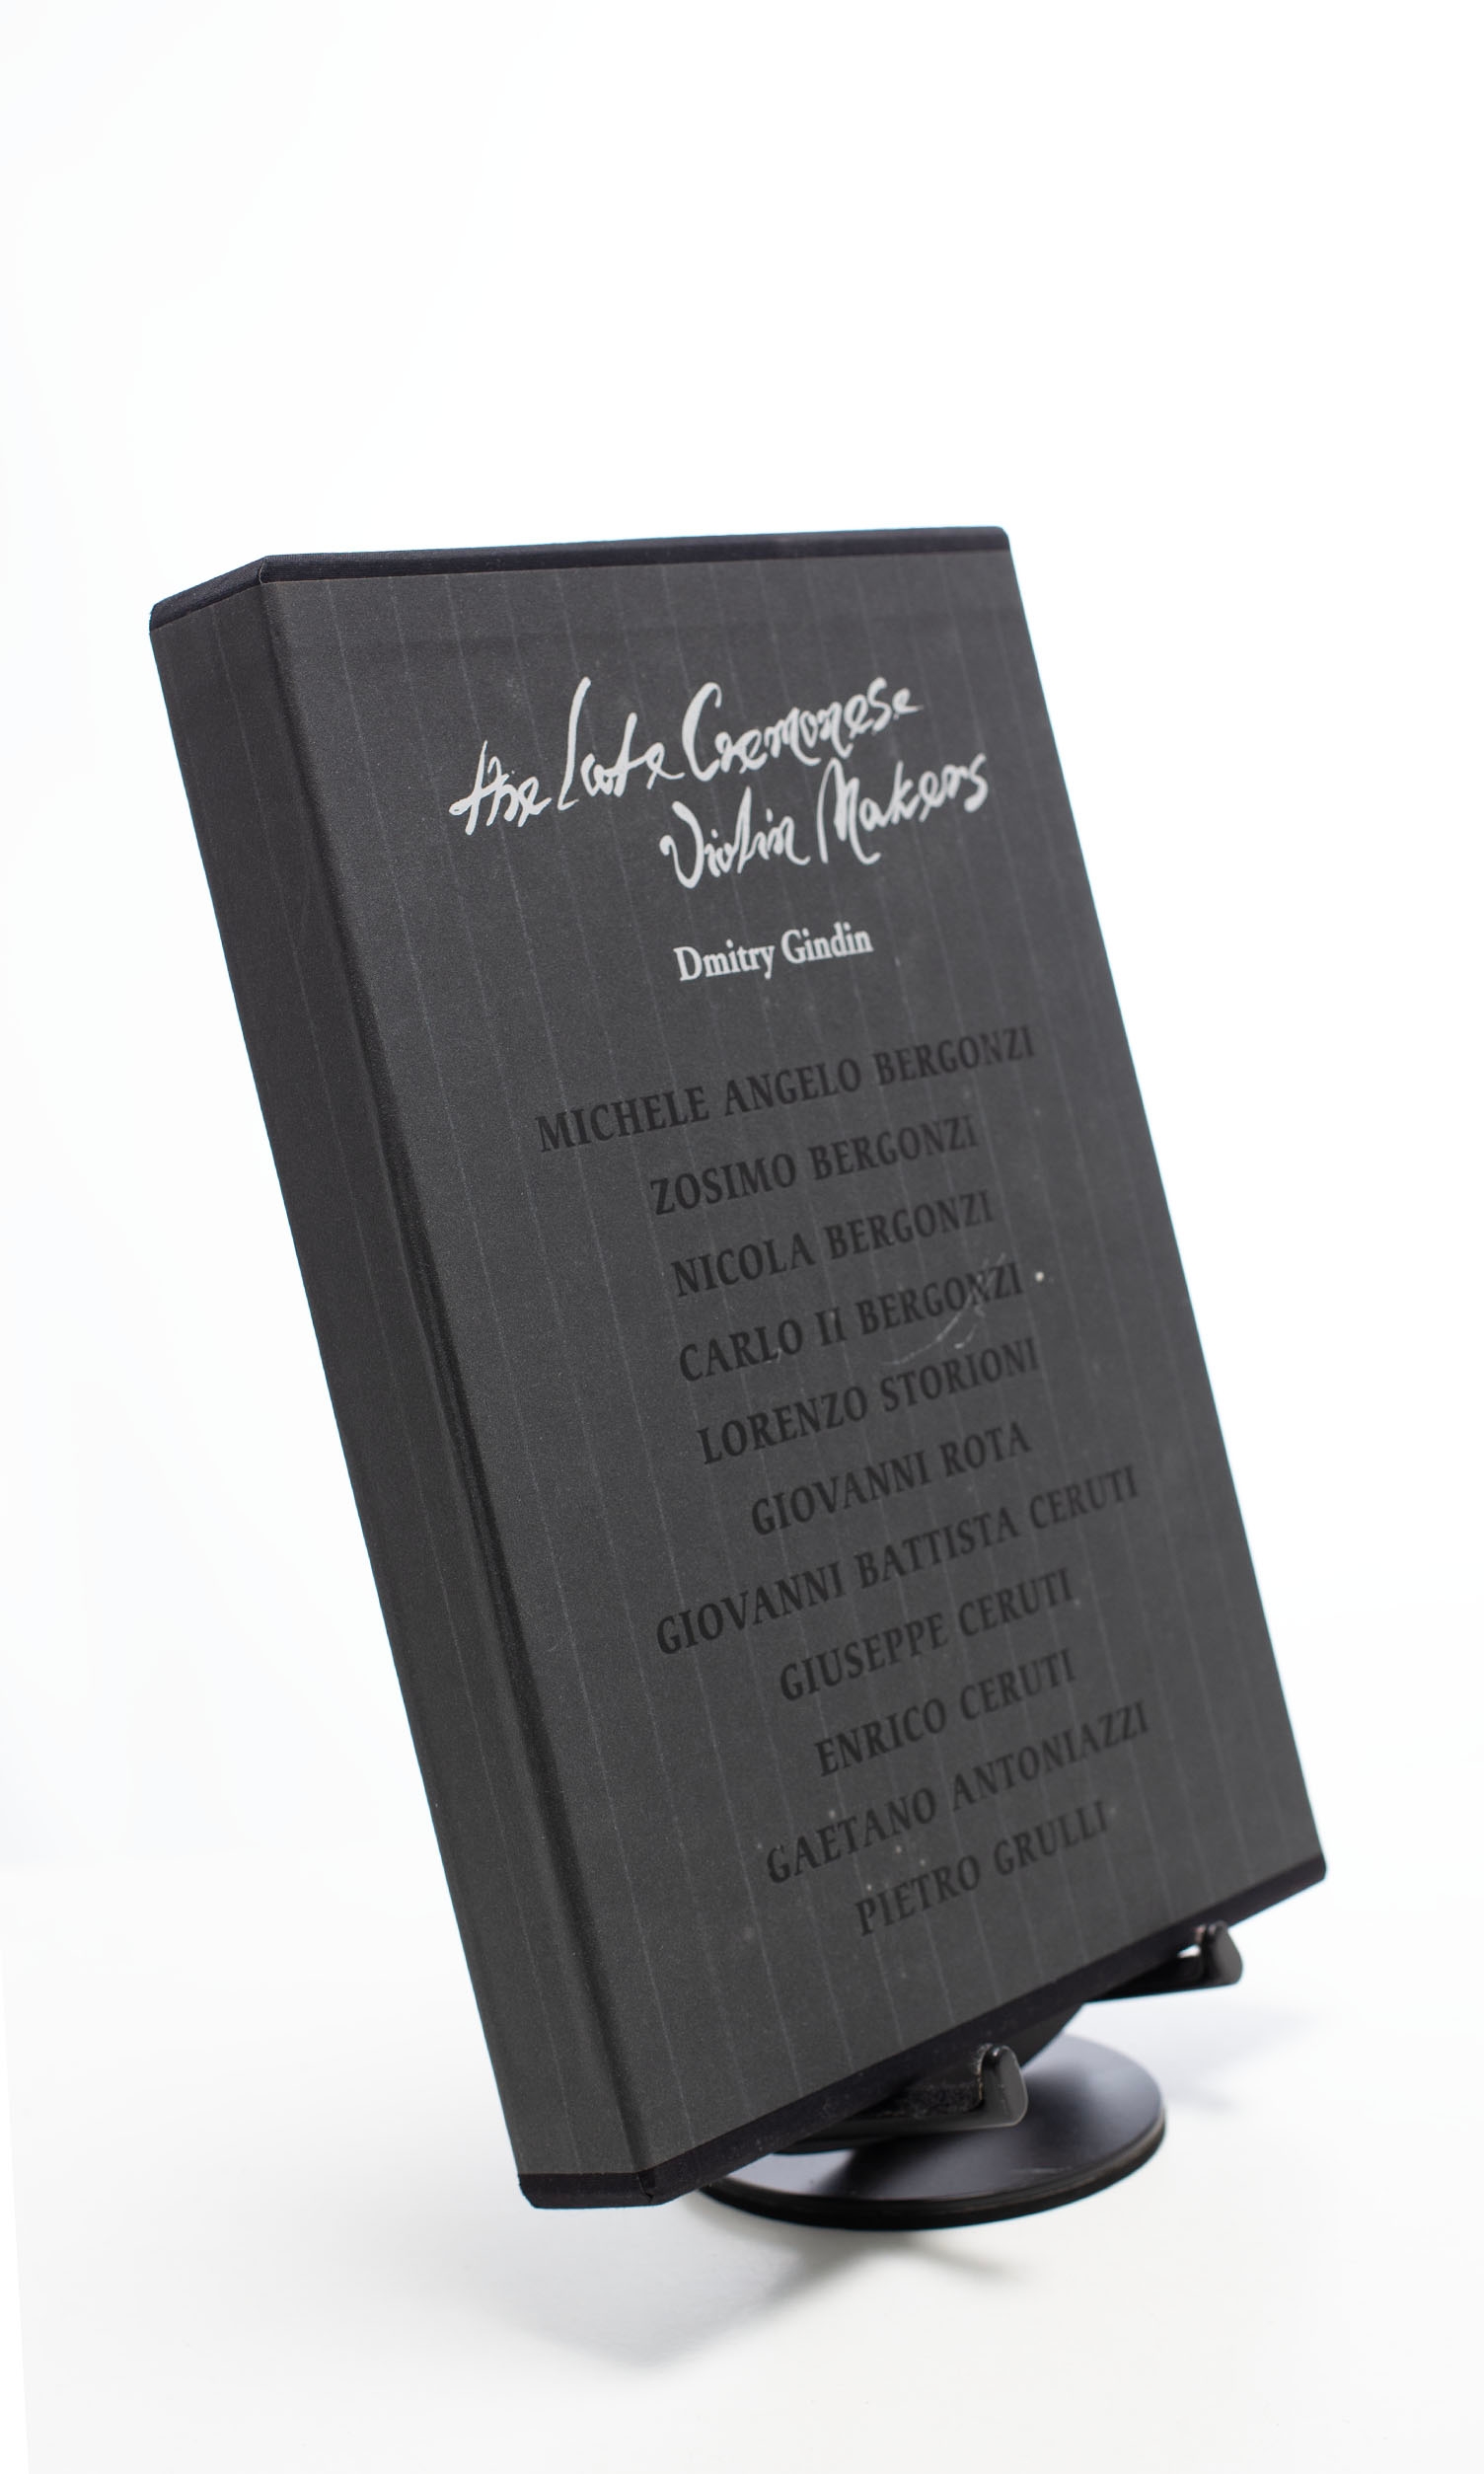 the Late Cremonese
Violin Makers
Dmitry Gindin
MICHELE ANGELO BERGONZI
ZOSIMO BERGONZI
NICOLA BERGONZI
CARLO II BERGONZI
LORENZO STORIONI
GIOVANNI ROTA
GIOVANNI BATTISTA CERUTI
GIUSEPPE CERUTI
ENRICO CERUTI
GAETANO ANTONIAZZI
PIETRO GRULLI